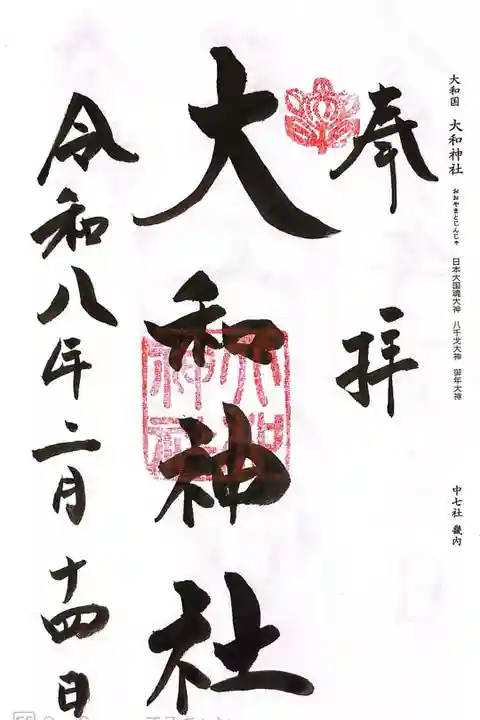 大和国 大和神社 おおやまとじんじゃ 日本大国魂大神 八千戈大神 御年大神
中七社 畿内
奉拝
大和神社
令和八年二月十四日